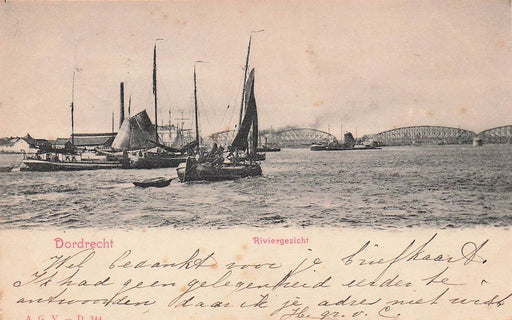 Dordrecht
Riviergezicht
Wel bedankt voor je briefkaart.
Ik had geen gelegenheid eerder te
antwoorden, daar ik je adres niet wist
H. gr. v. C.
A. G. V. – D. 344